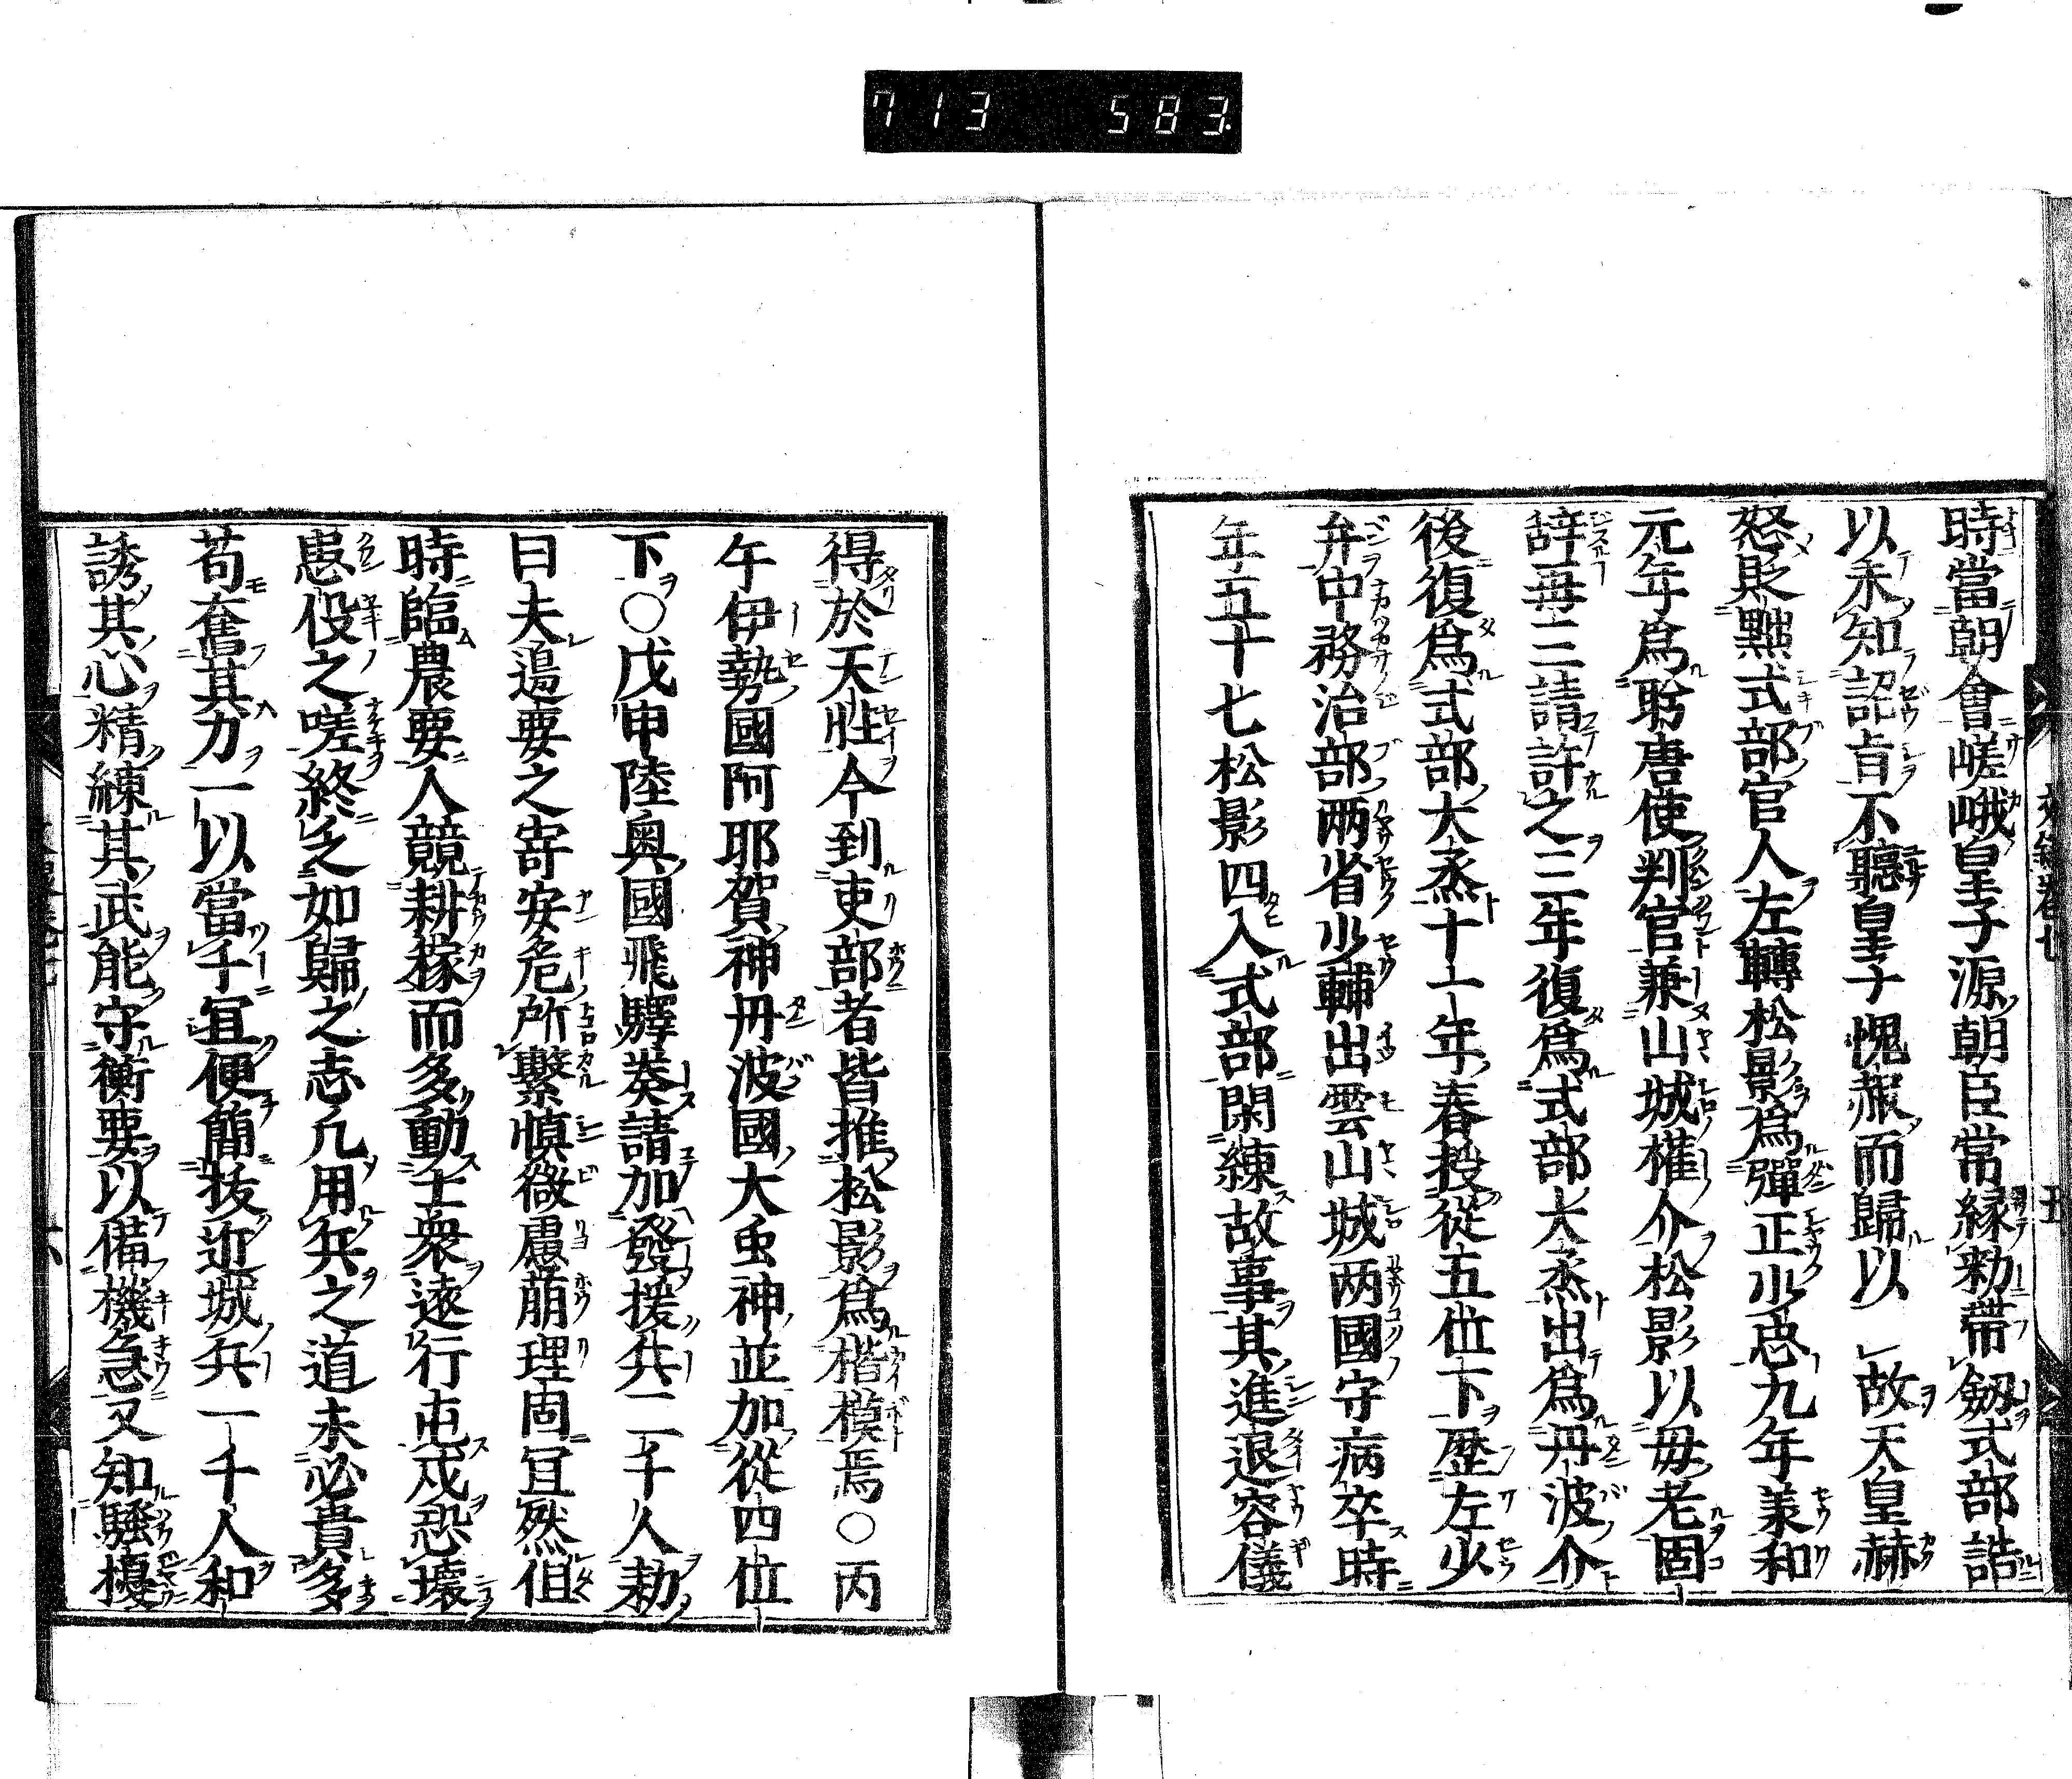 713 583
時當朝會嵯峨皇子源朝臣常縁勅帶劔式部誥
以未知詔㫖不聽皇子愧赧而歸以故天皇赫
怒貶黜式部官人左轉松影爲彈正少忠九年美和
元年爲聘唐使判官兼山城權介松影以母老固
辞再三請許之三年復爲式部大烝出爲丹波介
後復爲式部大烝十一年春授從五位下歴左少
弁中務治部两省少輔出雲山城两國守病卒時
年五十七松影四入式部閑練故事其進退容儀
得於天性今到吏部者皆推松影爲楷模焉○丙
午伊勢國阿耶賀神丹波國大虫神並加從四位
下○戊申陸奥國飛驛奏請加發援兵二千人勅
曰夫邉要之寄安危所繫慎微慮萠理固冝然但
時臨農要人競耕稼而多動士衆遠行屯戍恐壞
患役之嗟終乏如歸之志凡用兵之道未必貴多
苟奮其力一以當千冝便簡抜近城兵一千人和
誘其心精練其武能守衝要以備機急又知騷擾